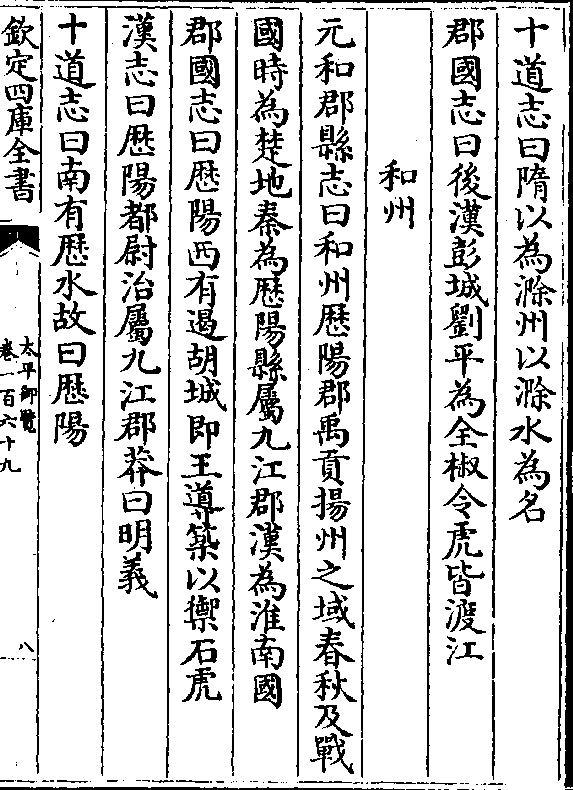 十道志曰隋以為滁州以滁水為名
郡國志曰後漢彭城劉平為全椒令虎皆渡江
和州
元和郡縣志曰和州歴陽郡禹貢揚州之域春秋及戰
國時為楚地秦為歴陽縣屬九江郡漢為淮南國
郡國志曰歴陽西有遏胡城即王導築以禦石虎
漢志曰歴陽都尉治屬九江郡莽曰明義
十道志曰南有歴水故曰歴陽
欽定四庫全書
太平御覽
卷一百六十九
八